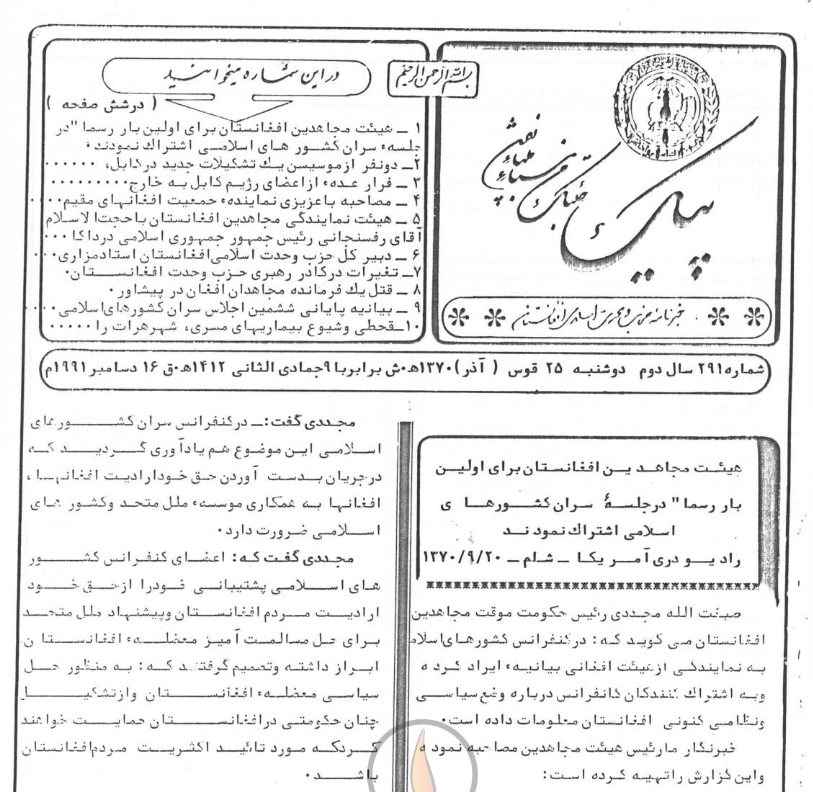 بسم الله الرحمن الرحیم
پیک
خبرنامه حزب وحدت اسلامی افغانستان
در این شماره میخوانید
( درشش صفحه )
۱ ــ هیئت مجاهدین افغانستان برای اولین بار رسما "در
جلسهء سران کشور های اسلامی اشتراك نمودند۰
۲ــ دونفر ازموسسین یك تشکیلات جدید درکابل، ۰۰۰۰۰۰
۳ ــ فرار عدهء ازاعضای رژیم کابل به خارج۰۰۰۰۰۰۰۰۰
۴ ــ مصاحبه باعزیزی نمایندهء جمعیت افغانهای مقیم۰۰۰۰
۵ ــ هیئت نمایندگی مجاهدین افغانستان باحجت الاسلام
آقای رفسنجانی رئیس جمهور جمهوری اسلامی درداکا ۰۰۰
۶ ــ دبیر کل حزب وحدت اسلامی افغانستان استادمزاری۰۰۰
۷ــ تغیرات درکادر رهبری حزب وحدت افغانســـتان۰
۸ ــ قتل یك فرمانده مجاهدان افغان در پیشاور۰
۹ ــ بیانیه پایانی ششمین اجلاس سران کشورهای اسلامی۰۰۰۰
۱۰ــقحطی وشیوع بیماریهای مسری، شهرهرات را ۰۰۰۰۰
شماره ۲۹۱ سال دوم دوشنبه ۲۵ قوس ( آذر ) ۱۳۷۰ه‍۰ش برابر با ۹جمادی الثانی ۱۴۱۲ه‍۰ق ۱۶ دسامبر ۱۹۹۱م)
هیئت مجاهد ین افغانستان برای اولین
بار رسما" درجلسهٔ سران کشــورهــا ی
اسلامی اشتراك نمود ند
راد یــو دری آمــر یکا ــ شلم ــ ۱۳۷۰/۹/۲۰
صبغت الله مجددی رئیس حکومت موقت مجاهدین
افغانستان می گوید که : درکنفرانس کشورهای اسلام
به نمایندگی ازهیئت افغانی بیانیهء ایراد کرد ه
وبه اشتراك کنندگان کانفرانس درباره وضع سیاســی
ونظامی کنونی افغانستان معلومات داده است۰
خبرنگار مارئیس هیئت مجاهدین مصاحبه نمود ه
واین گزارش راتهیه کرده است :
مجددی گفت :ــ درکنفرانس سران کشـــــورهای
اســلامی این موضوع هم یادآوری گـــردیـــد کــه
درجریان بــدست آوردن حق خودارادیت افغانهــا ،
افغانها بــه همکاری موسسهء ملل متحد وکشور های
اســــلامی ضرورت دارد۰
مجددی گفت که : اعضـای کنفرانس کشــــور
های اســلامی پشتیبانــی خودرا ازحــق خــود
ارادیت مــردم افغانستان وپیشنهاد ملل متحــد
برای حل مسالمت آمیز معضلــهء افغانســـتا ن
ابــراز داشته وتصمیم گرفتند که : به منظور حــل
سیاسی معضلهء افغانســــتان وازتشکیــــل
چنان حکومتی درافغانســـتان حمایت خواهند
کــردکـه مورد تائیـد اکثریت مردم افغانستان
باشـــد۰